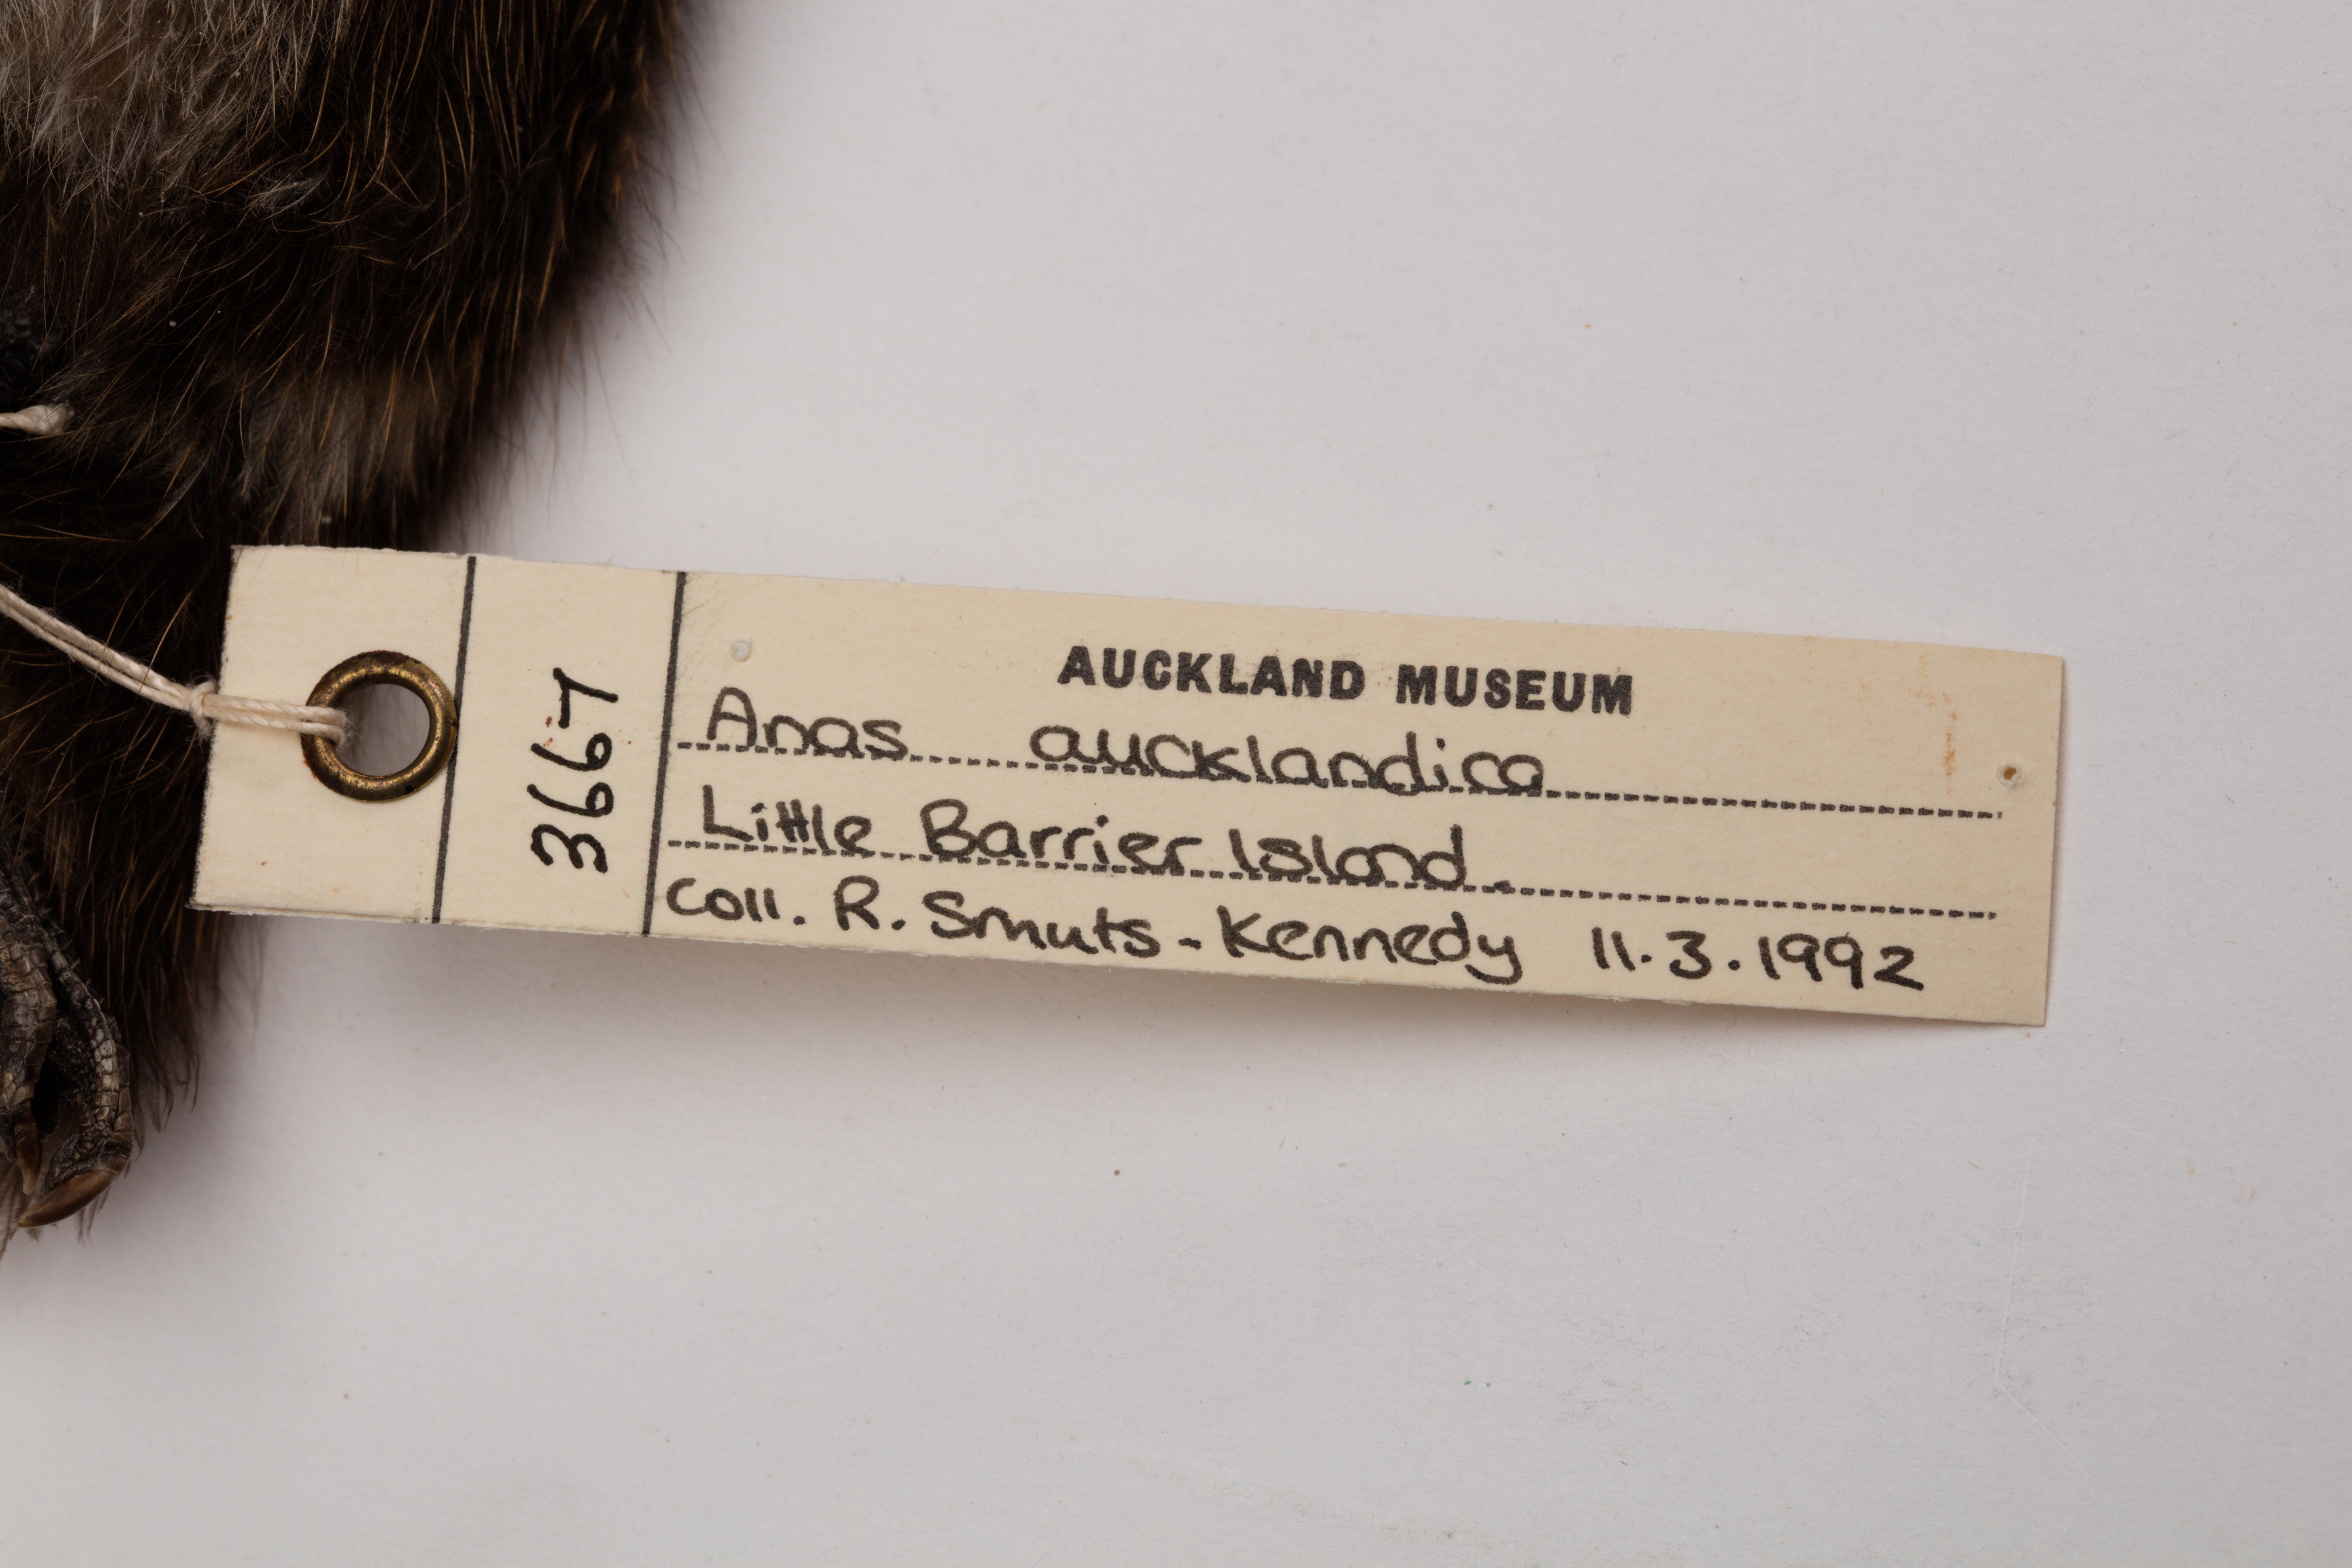 3667
AUCKLAND MUSEUM
Anas aucklandica
Little Barrier Island.
Coll. R. Smuts-Kennedy 11.3.1992